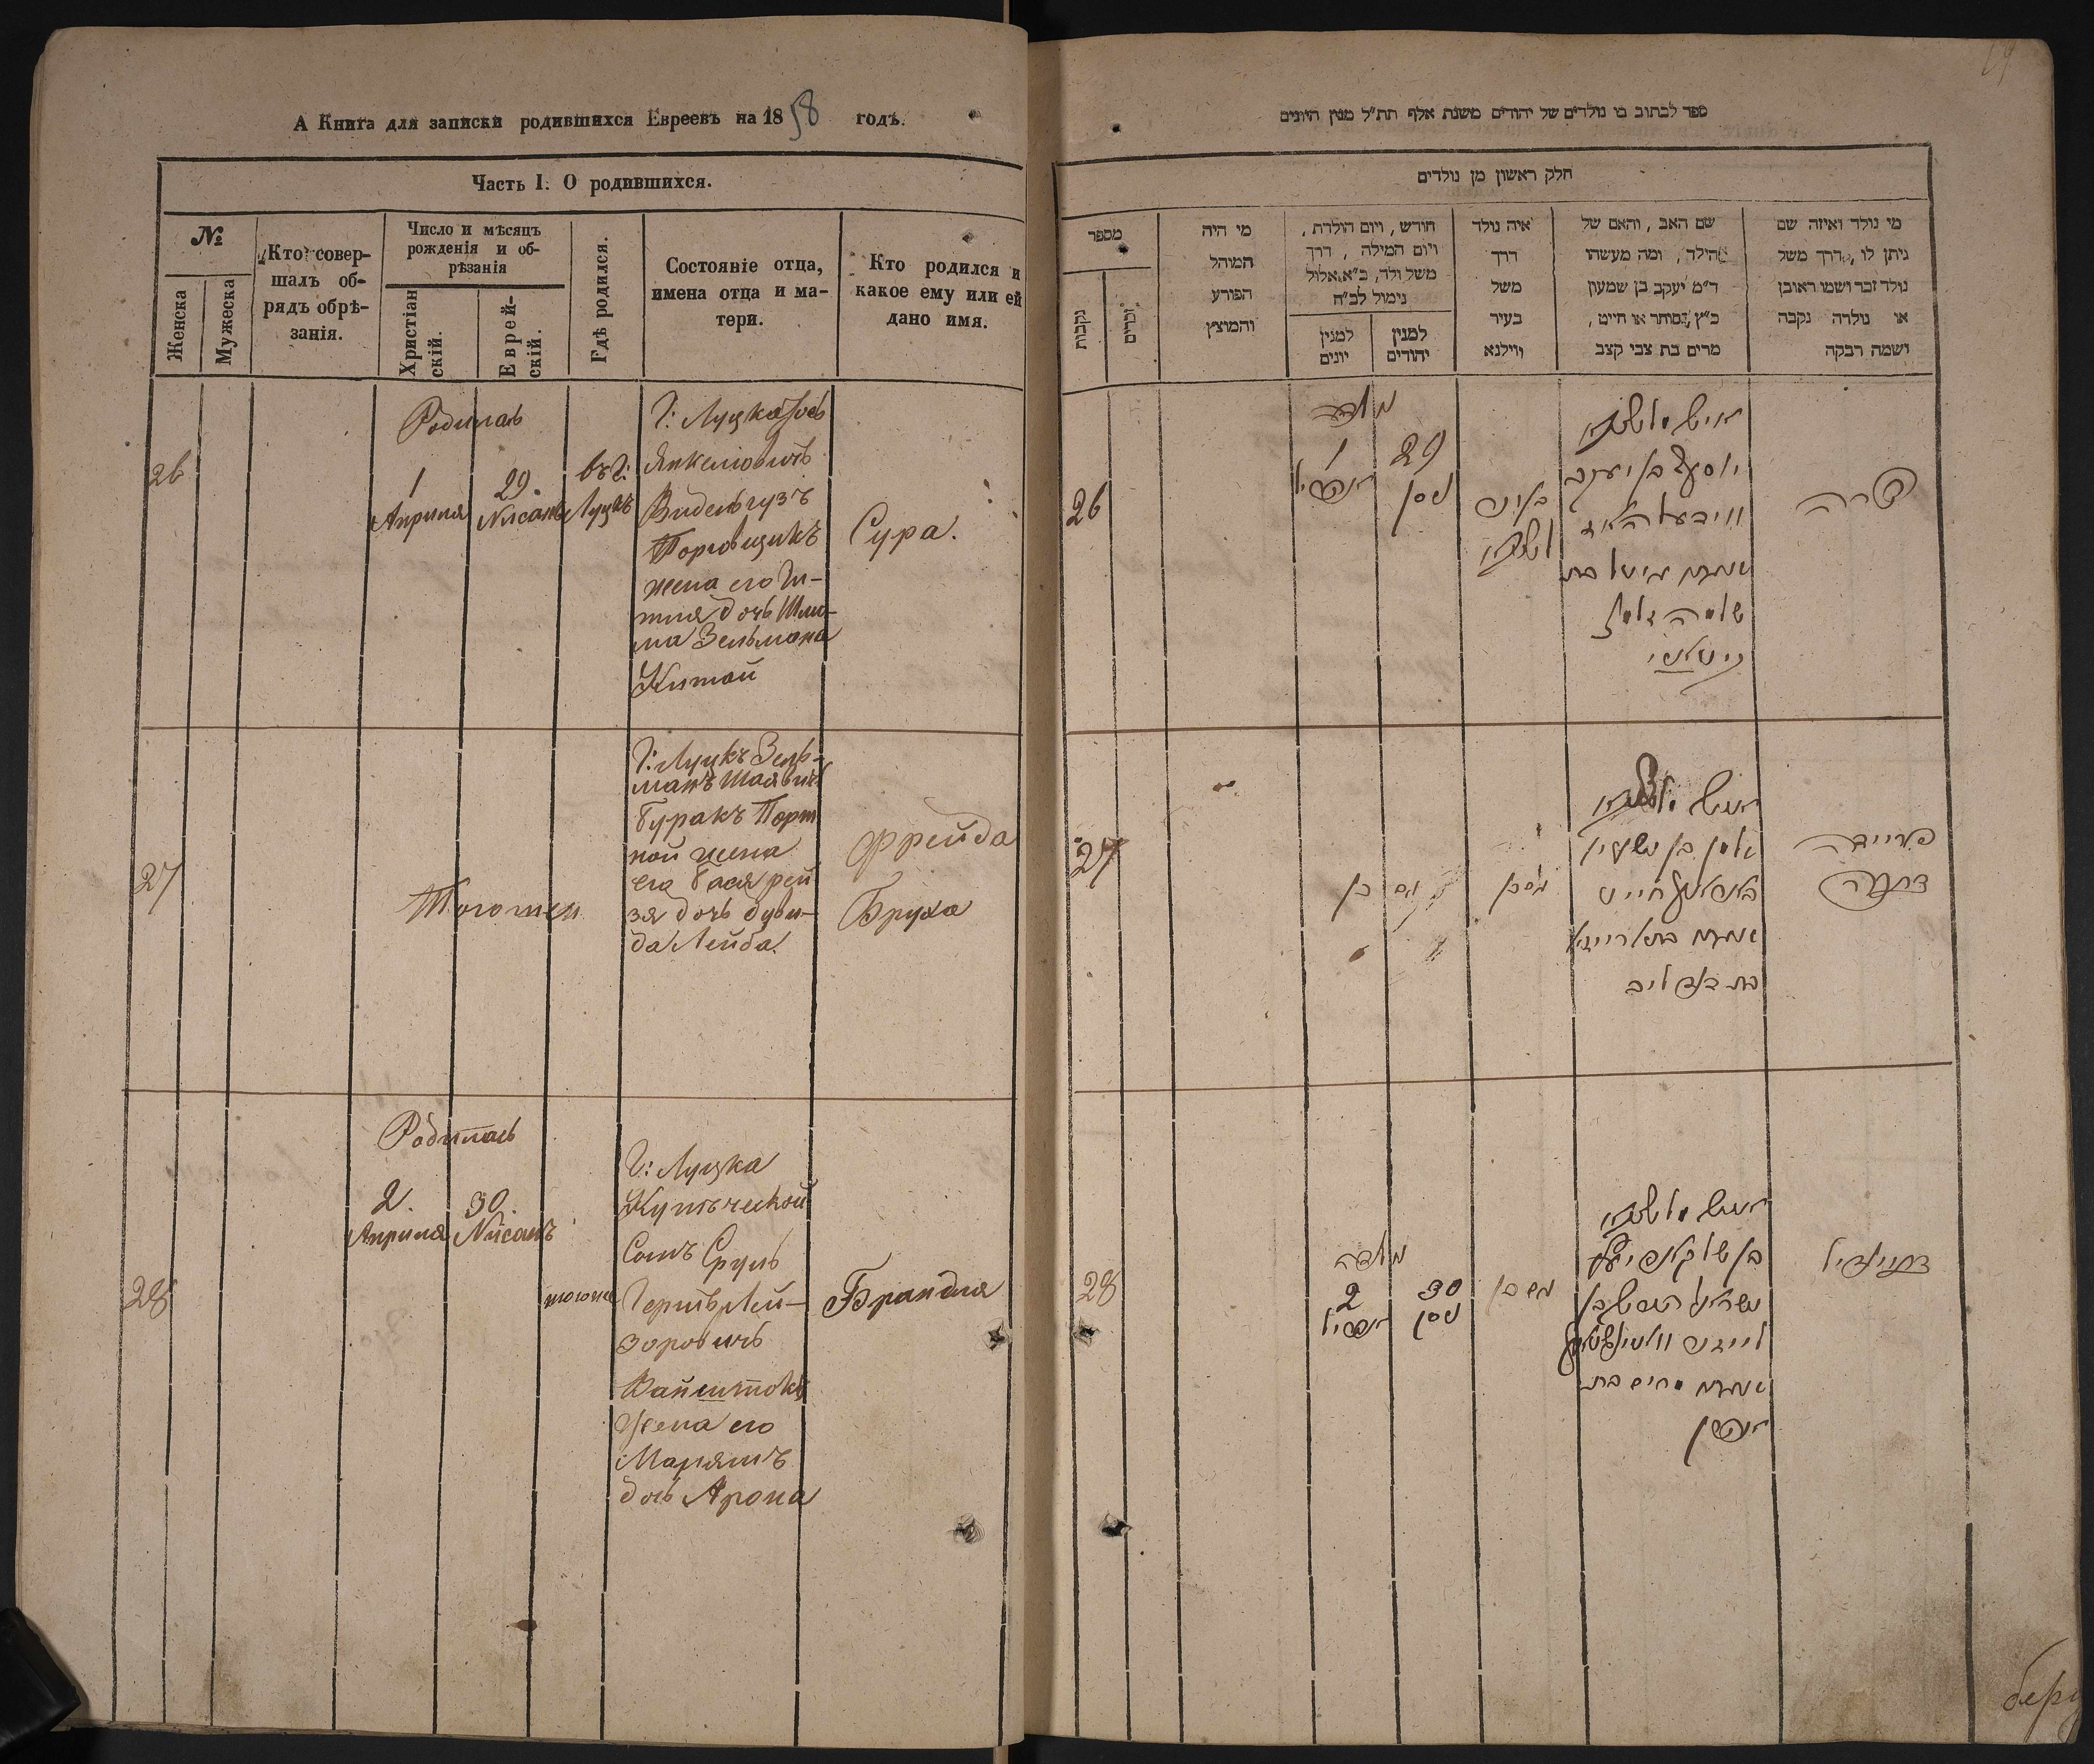 А Книга для записки родившихся Евреевъ на 1858 годъ.
Часть I. О родившихся.
№
Женска
Мужеска
Кто совер-
шалъ об-
рядъ обрѣ-
занія.
Число и мѣсяцъ
рожденія и об-
рѣзанія
Христіан
скій.
Еврей-
скій.
Гдѣ родился.
Состояніе отца,
имена отца и ма-
тери.
Кто родился и
какое ему или ей
дано имя.
26
Родилась
1
Апрыля
29.
Нисанъ
въ г:
Луцкъ
Г: Луцка Іось
Янкеліовичъ
Видельгузъ
Торговщикъ
жена его Ги-
тля дочь Шлио-
ма Зельмана
Китай
Сура.
27
Тогоже
Г: Луцкъ Зель-
манъ Шаявичъ
Буракъ Порт
ной жена
его Бася рей
зя дочь Дуви-
да Лейба.
Фрейда
Бруха
28
Родилась
2.
Апрыля
30.
Нисанъ
тогоже
Г: Луцка
Купеческой
Сынъ Сруль
Гершъ Лей-
зоровичъ
Вайнштокъ
Жена его
Марямъ
дочь Арона
Брандля
ספר לכתוב בו נולדים של יהודים משנת אלף תת״ל מנין היונים
חלק ראשון מן נולדים
מספר
נקבות
זכרים
מי היה
המוהל
הפורע
והמוצץ
חודש, ויום הולדת,
ויום המילה, דרך
משל ולד, כ״א אלול
נימול לכ״ח
למנין
יונים
למנין
יהודים
איה נולד
דרך
משל
בעיר
ווילנא
שם האב, והאם של
הילד, ומה מעשהו
ד״מ יעקב בן שמעון
כ״ץ, סוחר או חייט,
מרים בת צבי קצב
מי נולד ואיזה שם
ניתן לו, דרך משל
נולד זכר ושמו ראובן
או נולדה נקבה
ושמה רבקה
26
נולדה
1
אפריל
29
ניסן
יוסף בן יעקב
שלמה זלמן
שרה
27
זלמן בן ישעיה
חייט
בת דוד ליב
פריידה
ברכה
28
נולדה
2
אפריל
30
ניסן
מרים בת
אהרן
בריינדיל